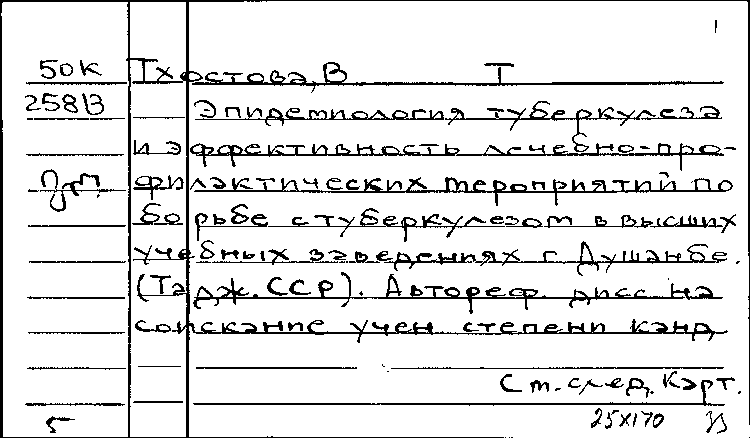 1
50К Тхостова, В Т
258В Эпидемиология туберкулеза
и эффективность лечебно-про-
филактических мероприятий по
борьбе с туберкулезом в высших
учебных заведениях г. Душанбе.
(Тадж. ССР). Автореф. дисс на
соискание учен степени канд
См. след. карт.
5 25х170